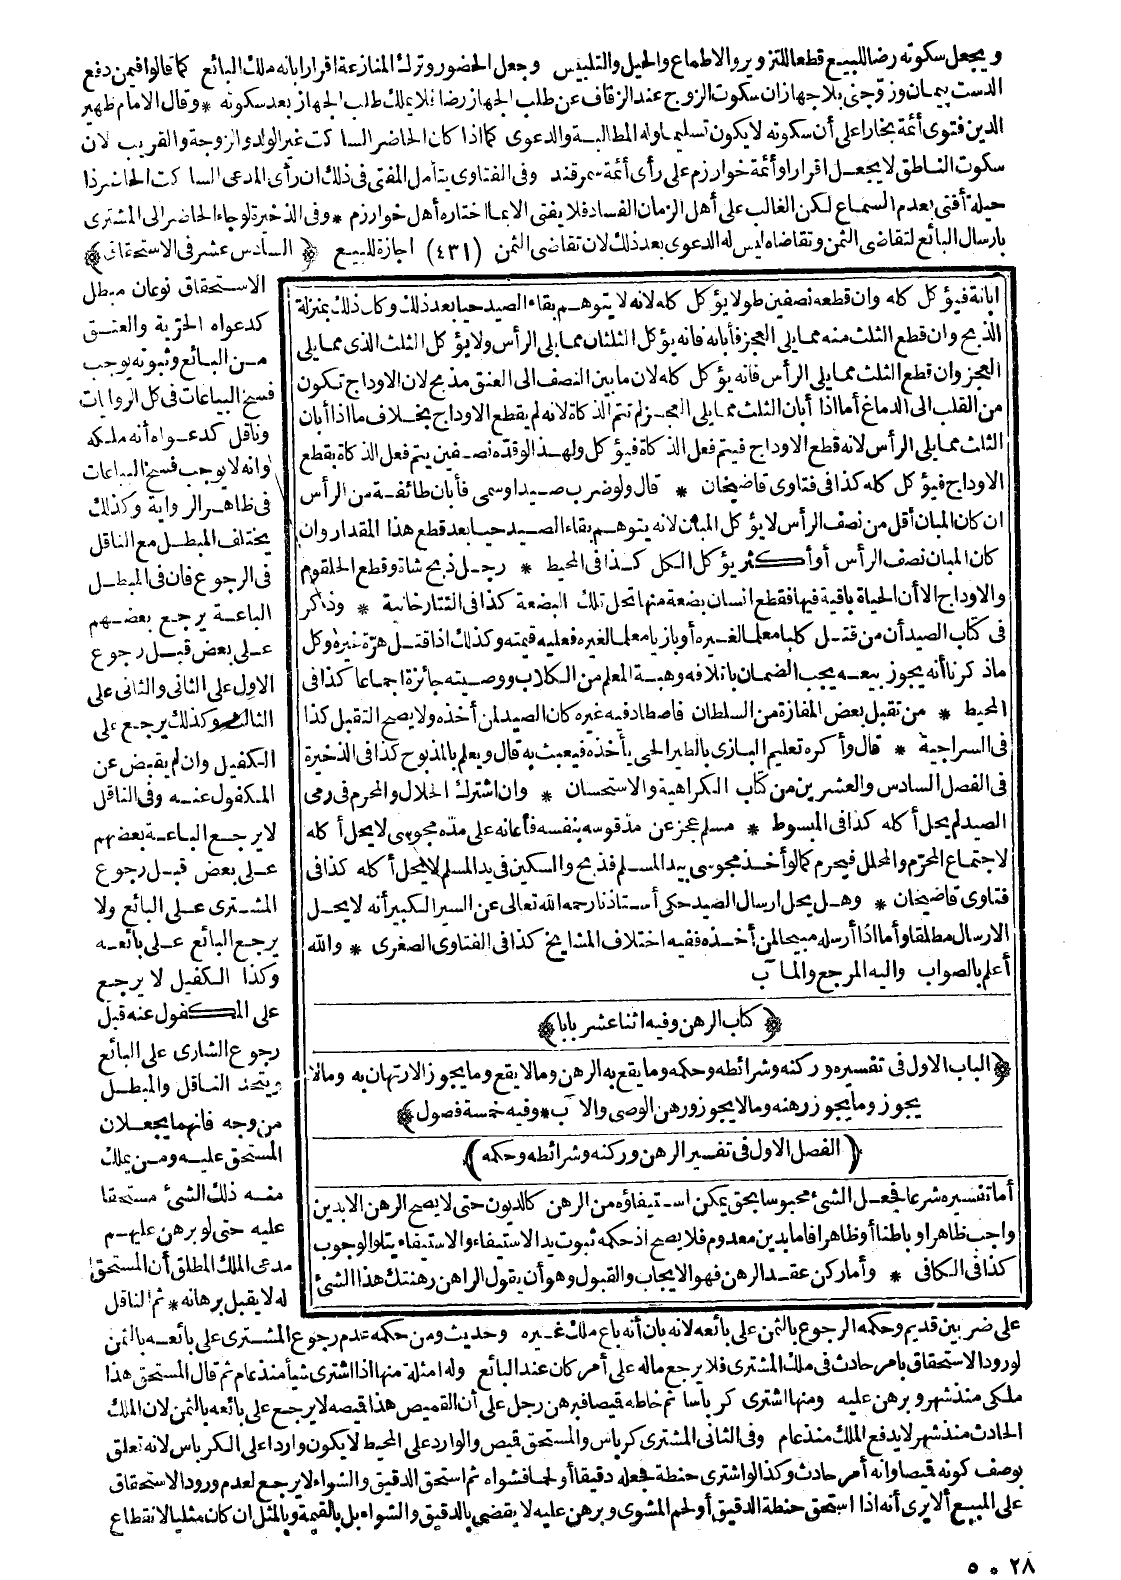 ويجعل سكوته رضا للبيع قطعا للتزوير والاطماع والحيل والتلبيس وجعل الحضور وترك المنازعة اقرارا بانه ملك البائع كما قالوا فيمن دفع
الدست بيمان وزوجنى بلا جهاز ان سكوت الزوج عند الزفاف عن طلب الجهاز رضا فلا يملك طلب الجهاز بعد سكونه * وقال الامام ظهير
الدين فتوى أئمة بخارا على أن سكوته لا يكون تسليما وله المطالبة والدعوى كما اذا كان الحاضر الساكت غير الولد والزوجة والقريب لان
سكوت الناطق لا يجعل اقرارا وأئمة خوارزم على رأى أئمة سمرقند وفى الفتاوى يتأمل المفتى فى ذلك ان رأى المدعى الساكت الحاضر ذا
حيلة أفتى بعدم السماع لكن الغالب على أهل الزمان الفساد فلا يفتى الا بما اختاره أهل خوارزم * وفى الذخيرة لو جاء الحاضر الى المشترى
بارسال البائع لتقاضى الثمن وتقاضاه ليس له الدعوى بعد ذلك لان تقاضى الثمن (٤٣١) اجازة للبيع ﴿ السادس عشر فى الاستحقاق ﴾
ابانة فيؤكل كله وان قطعه نصفين طولا يؤكل كله لانه لا يتوهم بقاء الصيد حيا بعد ذلك وكان ذلك بمنزلة
الذبح وان قطع الثلث منه مما يلى العجز فأبانه فانه يؤكل الثلثان مما يلى الرأس ولا يؤكل الثلث الذى مما يلى
العجز وان قطع الثلث مما يلى الرأس فانه يؤكل كله لان ما بين النصف الى العنق مذبح لان الاوداج تكون
من القلب الى الدماغ أما اذا أبان الثلث مما يلى العجز لم تتم الذكاة لانه لم يقطع الاوداج بخلاف ما اذا أبان
الثلث مما يلى الرأس لانه قطع الاوداج فيتم فعل الذكاة فيؤكل ولهذا لو قده نصفين يتم فعل الذكاة بقطع
الاوداج فيؤكل كله كذا فى فتاوى قاضيخان * قال ولو ضرب صيدا وسمى فأبان طائفة من الرأس
ان كان المبان أقل من نصف الرأس لا يؤكل المبان لانه يتوهم بقاء الصيد حيا بعد قطع هذا المقدار وان
كان المبان نصف الرأس أو أكثر يؤكل الكل كذا فى المحيط * رجل ذبح شاة وقطع الحلقوم
والاوداج الا أن الحياة باقية فيها فقطع انسان بضعة منها تحل تلك البضعة كذا فى التتارخانية * وذكر
فى كتاب الصيد أن من قتل كلبا معلما لغيره أو بازيا معلما لغيره فعليه قيمته وكذلك اذا قتل هرة غيره وكل
ما ذكرنا أنه يجوز بيعه يجب الضمان باتلافه وهبة المعلم من الكلاب ووصيته جائزة اجماعا كذا فى
المحيط * من تقبل بعض المفازة من السلطان فاصطاد فيه غيره كان الصيد لمن أخذه ولا يصح التقبل كذا
فى السراجية * قال وأكره تعليم البازى بالطير الحى يأخذه فيعبث به قال ويعلم بالمذبوح كذا فى الذخيرة
فى الفصل السادس والعشرين من كتاب الكراهية والاستحسان * وان اشترك الحلال والمحرم فى رمى
الصيد لم يحل أكله كذا فى المبسوط * مسلم عجز عن مد قوسه بنفسه فأعانه على مده مجوسى لا يحل أكله
لاجتماع المحرم والمحلل فيحرم كما لو أخذ مجوسى بيد المسلم فذبح والسكين فى يد المسلم لا يحل أكله كذا فى
فتاوى قاضيخان * وهل يحل ارسال الصيد حكى أستاذنا رحمه الله تعالى عن السير الكبير أنه لا يحل
الارسال مطلقا وأما اذا أرسله مبيحا لمن أخذه ففيه اختلاف المشايخ كذا فى الفتاوى الصغرى * والله
أعلم بالصواب واليه المرجع والمآب
﴿ كتاب الرهن وفيه اثنا عشر بابا ﴾
﴿ الباب الاول فى تفسيره وركنه وشرائطه وحكمه وما يقع به الرهن وما لا يقع وما يجوز الارتهان به وما لا
يجوز وما يجوز رهنه وما لا يجوز ورهن الوصى والاب * وفيه خمسة فصول ﴾
( الفصل الاول فى تفسير الرهن وركنه وشرائطه وحكمه )
أما تفسيره شرعا فجعل الشئ محبوسا بحق يمكن استيفاؤه من الرهن كالديون حتى لا يصح الرهن الا بدين
واجب ظاهرا وباطنا أو ظاهرا فاما بدين معدوم فلا يصح اذ حكمه ثبوت يد الاستيفاء والاستيفاء يتلو الوجوب
كذا فى الكافى * وأما ركن عقد الرهن فهو الايجاب والقبول وهو أن يقول الراهن رهنتك هذا الشئ
الاستحقاق نوعان مبطل
كدعواه الحرية والعتق
من البائع وثبوته يوجب
فسخ البياعات فى كل الروايات
وناقل كدعواه أنه ملكه
وانه لا يوجب فسخ البياعات
فى ظاهر الرواية وكذلك
يختلف المبطل مع الناقل
فى الرجوع فان فى المبطل
الباعة يرجع بعضهم
على بعض قبل رجوع
الاول على الثانى والثانى على
الثالث وكذلك يرجع على
الكفيل وان لم يقبض عن
المكفول عنه وفى الناقل
لا يرجع الباعة بعضهم
على بعض قبل رجوع
المشترى على البائع ولا
يرجع البائع على بائعه
وكذا الكفيل لا يرجع
على المكفول عنه قبل
رجوع الشارى على البائع
ويتحد الناقل والمبطل
من وجه فانهما يجعلان
المستحق عليه ومن يملك
منه ذلك الشئ مستحقا
عليه حتى لو برهن عليهم
مدعى الملك المطلق أن المستحق
له لا يقبل برهانه * ثم الناقل
على ضربين قديم وحكمه الرجوع بالثمن على بائعه لانه بان أنه باع ملك غيره وحديث ومن حكمه عدم رجوع المشترى على بائعه بالثمن
لورود الاستحقاق بامر حادث فى ملك المشترى فلا يرجع ماله على أمر كان عند البائع وله امثلة منها اذا اشترى شيأ منذ عام ثم قال المستحق هذا
ملكى منذ شهر وبرهن عليه ومنها اشترى كرباسا ثم خاطه قميصا فبرهن رجل على أن القميص هذا قميصه لا يرجع على بائعه بالثمن لان الملك
الحادث منذ شهر لا يدفع الملك منذ عام وفى الثانى المشترى كرباس والمستحق قميص والوارد على المخيط لا يكون واردا على الكرباس لانه تعلق
بوصف كونه قميصا وانه أمر حادث وكذا لو اشترى حنطة فجعله دقيقا أو لحما فشواه ثم استحق الدقيق والشواء لا يرجع لعدم ورود الاستحقاق
على المبيع ألا يرى أنه اذا استحق حنطة الدقيق أو لحم المشوى وبرهن عليه لا يقضى بالدقيق والشواء بل بالقيمة وبالمثل ان كان مثليا لانقطاع
٢٨ * ٥